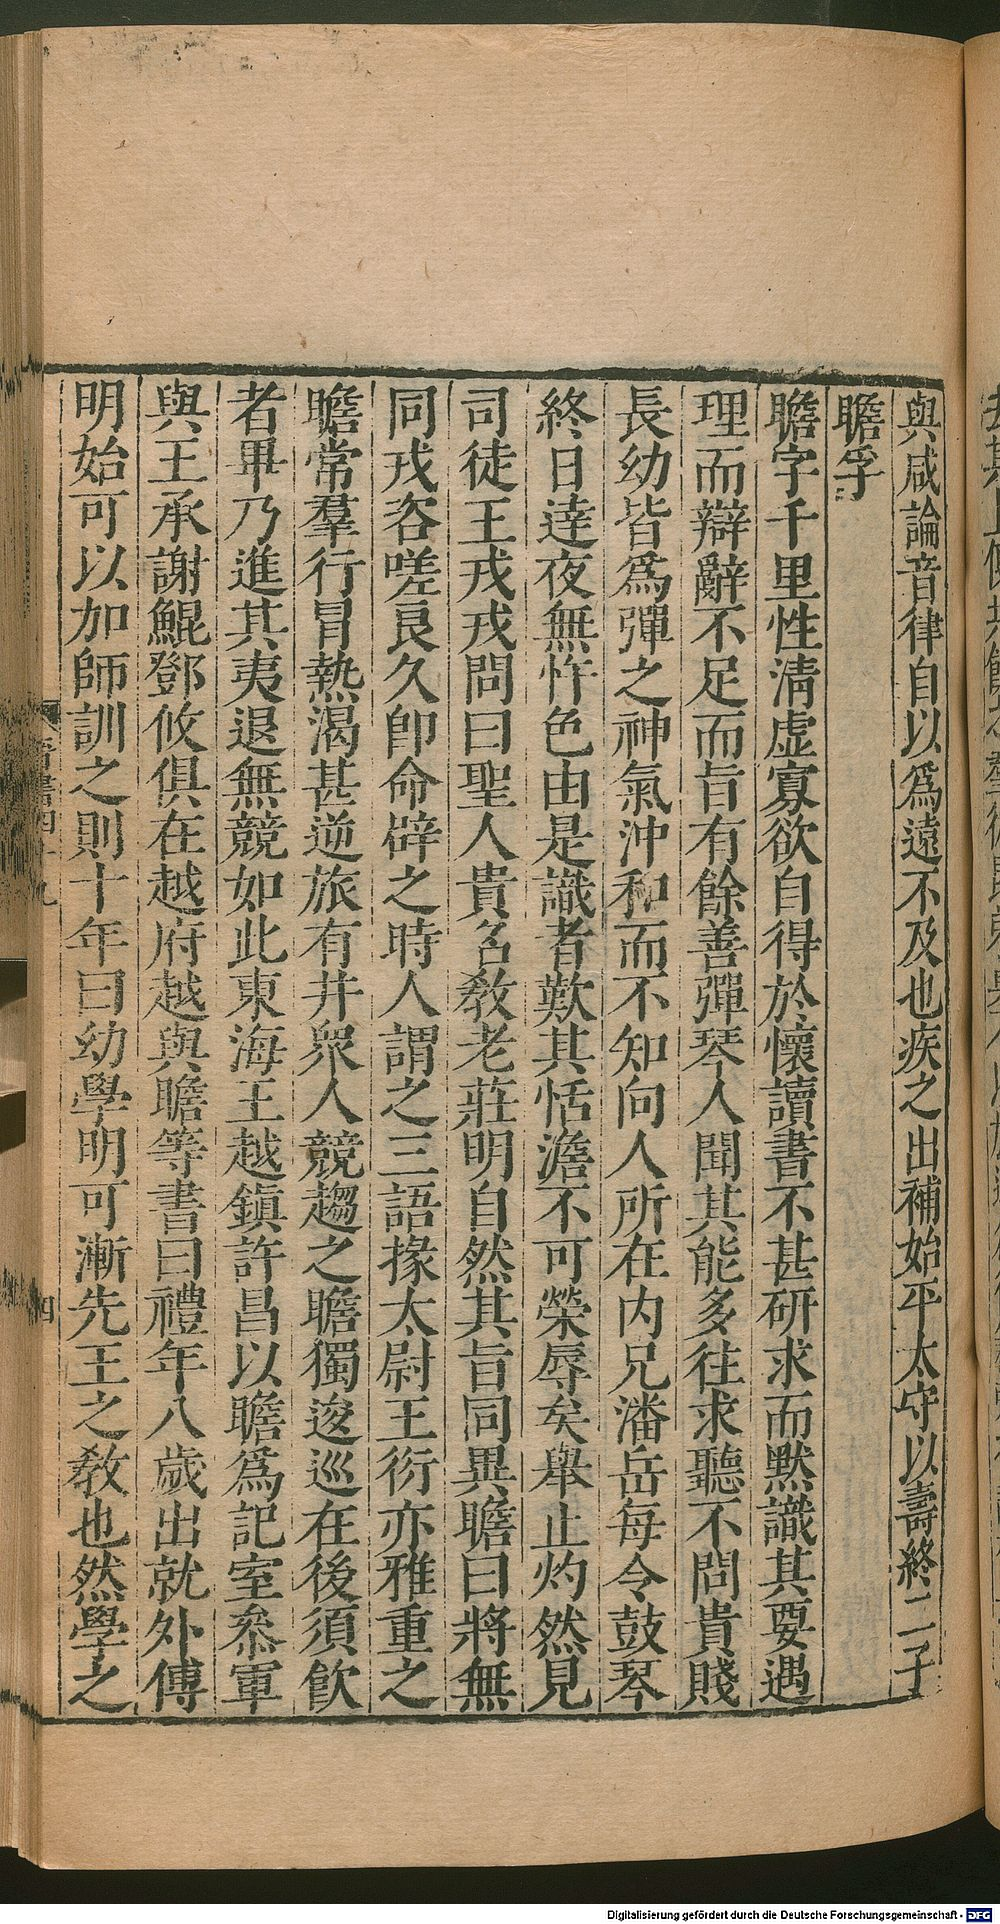 與咸論音律自以爲遠不及也疾之出補始平太守以壽終二子
瞻孚
瞻字千里性淸虚寡欲自得於懷讀書不甚硏求而默識其要遇
理而辯辭不足而旨有餘善彈琴人聞其能多往求聽不問貴賤
長幼皆爲彈之神氣沖和而不知向人所在内兄潘岳每令鼓琴
終日達夜無忤色由是識者歎其恬澹不可榮辱矣舉止灼然見
司徒王戎戎問曰聖人貴名敎老莊明自然其旨同異瞻曰將無
同戎咨嗟良久卽命辟之時人謂之三語掾太尉王衍亦雅重之
瞻常羣行冒熱渴甚逆旅有井衆人競趨之瞻獨逡巡在後須飮
者畢乃進其夷退無競如此東海王越鎭許昌以瞻爲記室參軍
與王承謝鯤鄧攸俱在越府越與瞻等書曰禮年八歲出就外傅
明始可以加師訓之則十年曰幼學明可漸先王之敎也然學之
晉書四十九
四
Digitalisierung gefördert durch die Deutsche Forschungsgemeinschaft - DFG